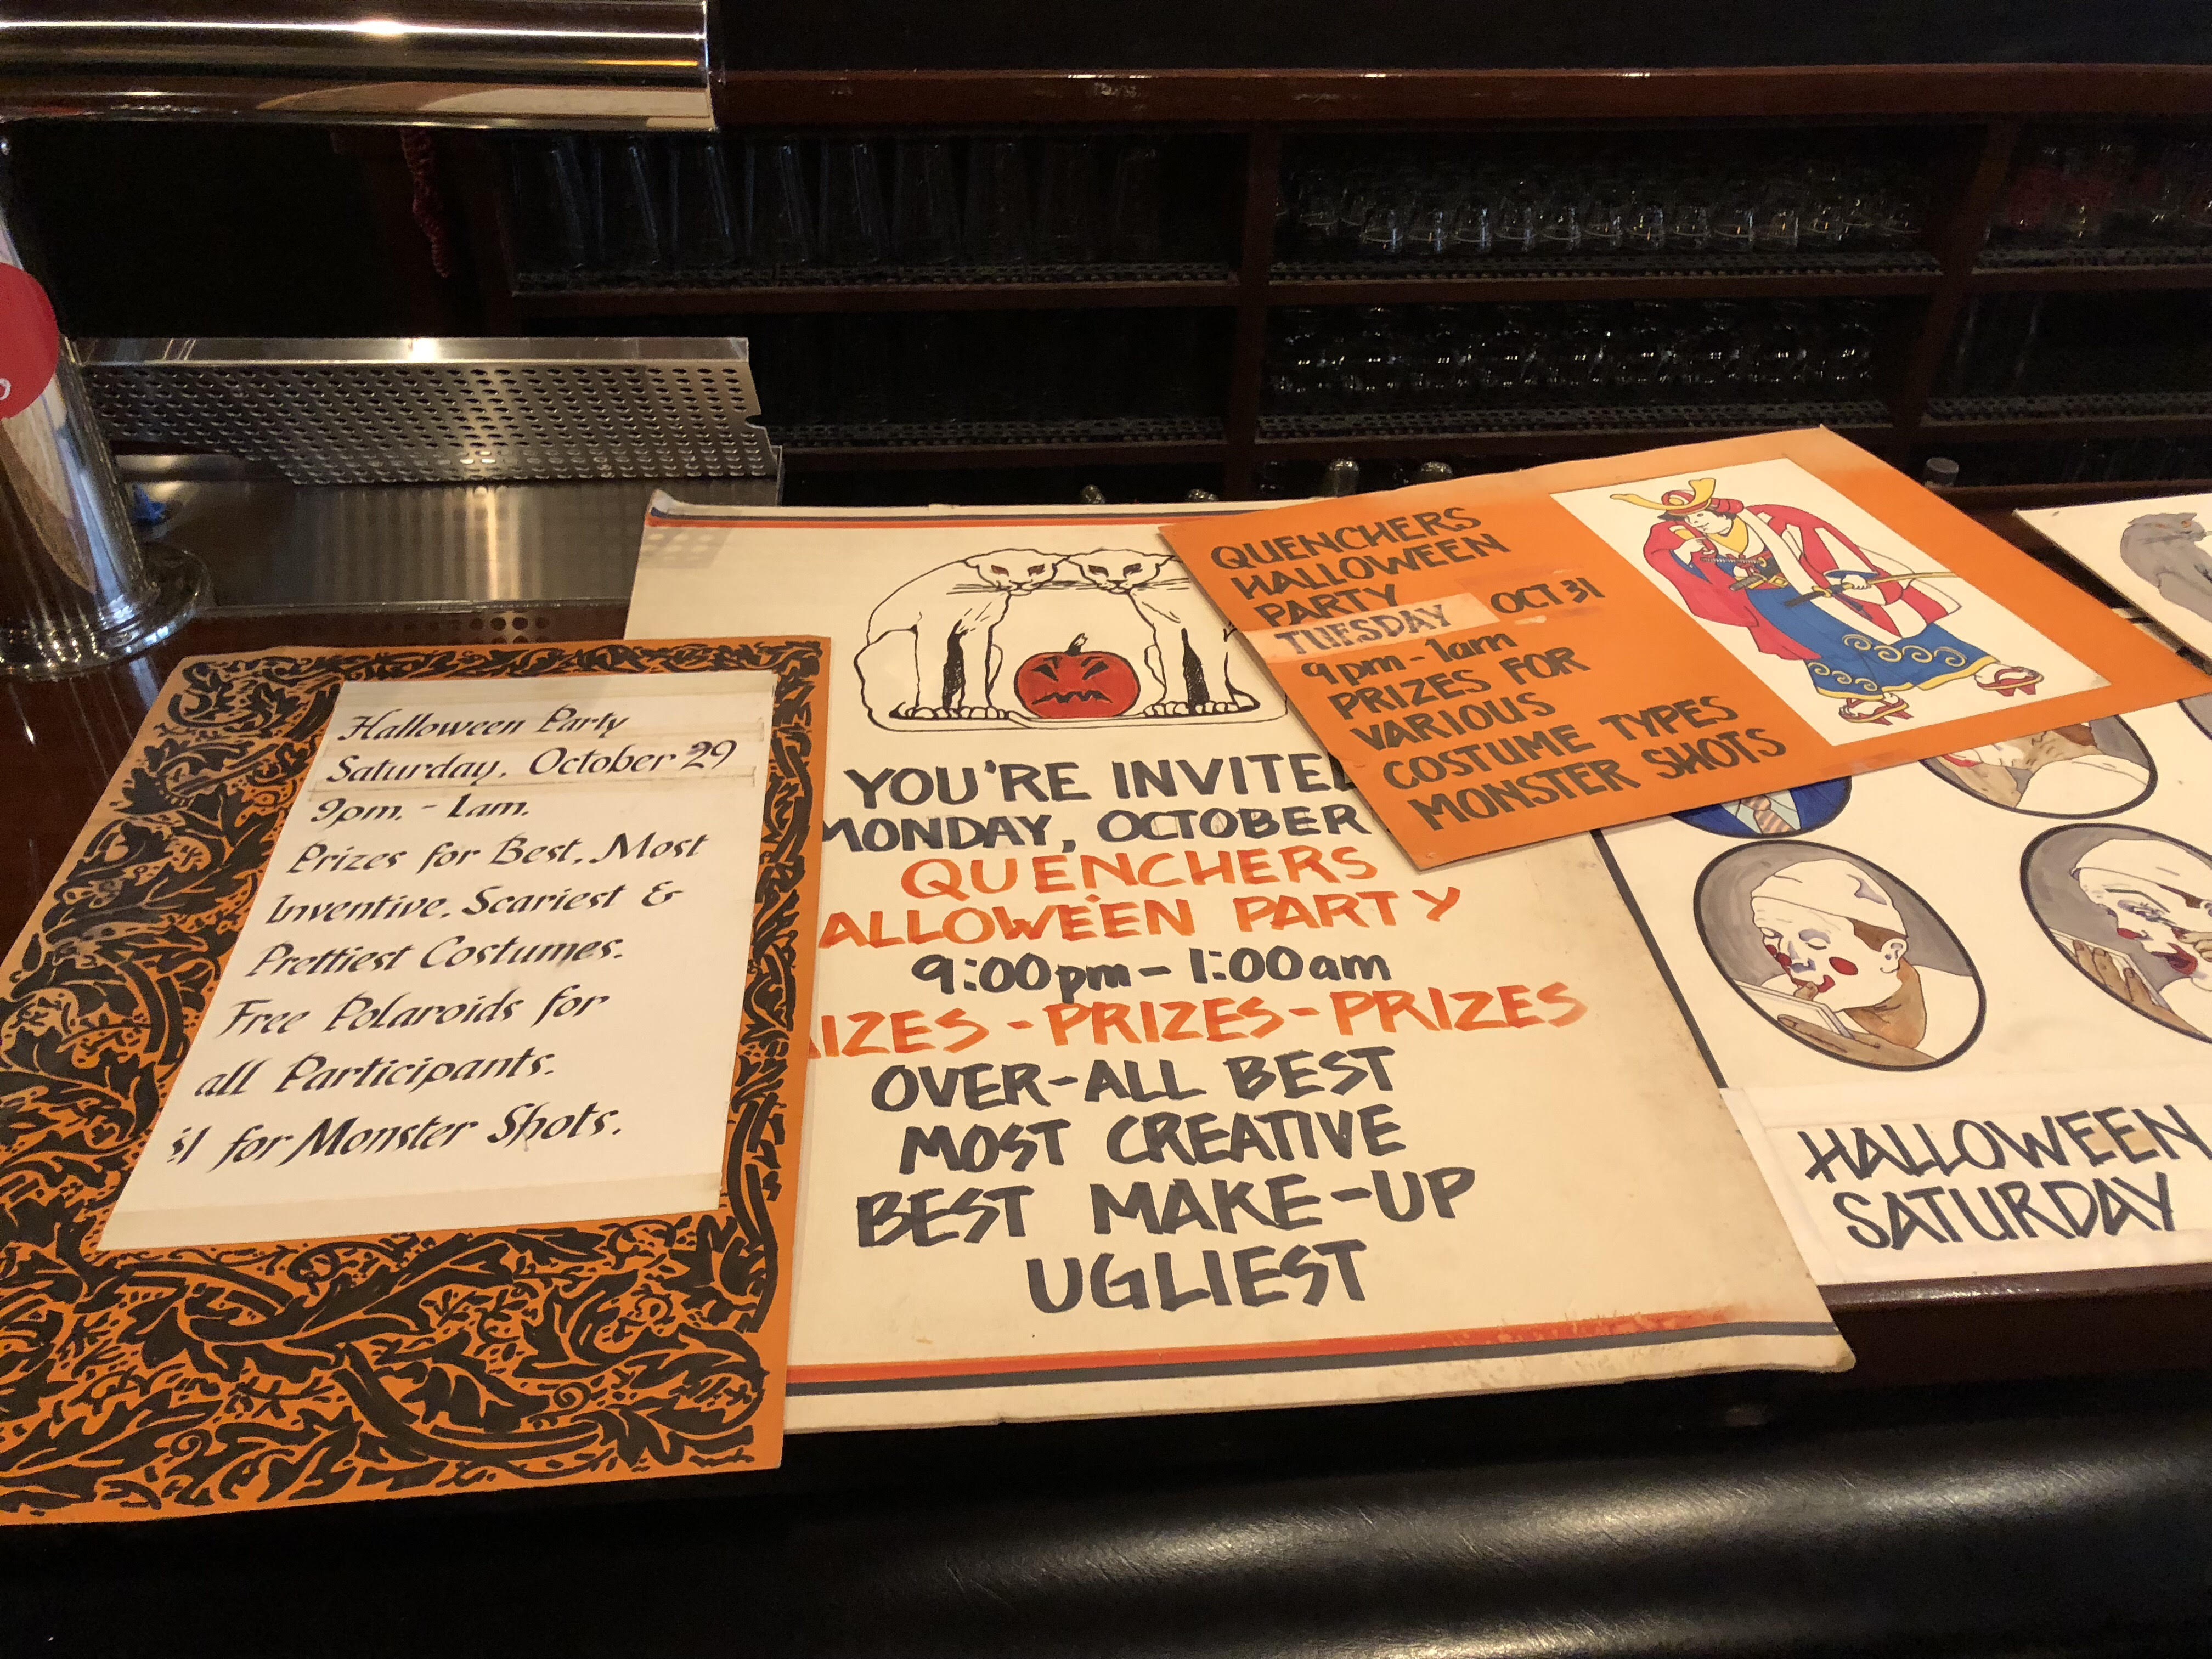 Halloween Party
Saturday, October 29
9pm. - 1am.
Prizes for Best, Most
Inventive, Scariest &
Prettiest Costumes.
Free Polaroids for
all Participants.
$1 for Monster Shots.
YOU'RE INVITED
MONDAY, OCTOBER
QUENCHERS
ALLOWEEN PARTY
9:00pm - 1:00am
IZES - PRIZES - PRIZES
OVER-ALL BEST
MOST CREATIVE
BEST MAKE-UP
UGLIEST
QUENCHERS
HALLOWEEN
PARTY
TUESDAY OCT 31
9pm - 1am
PRIZES FOR
VARIOUS
COSTUME TYPES
MONSTER SHOTS
HALLOWEEN
SATURDAY